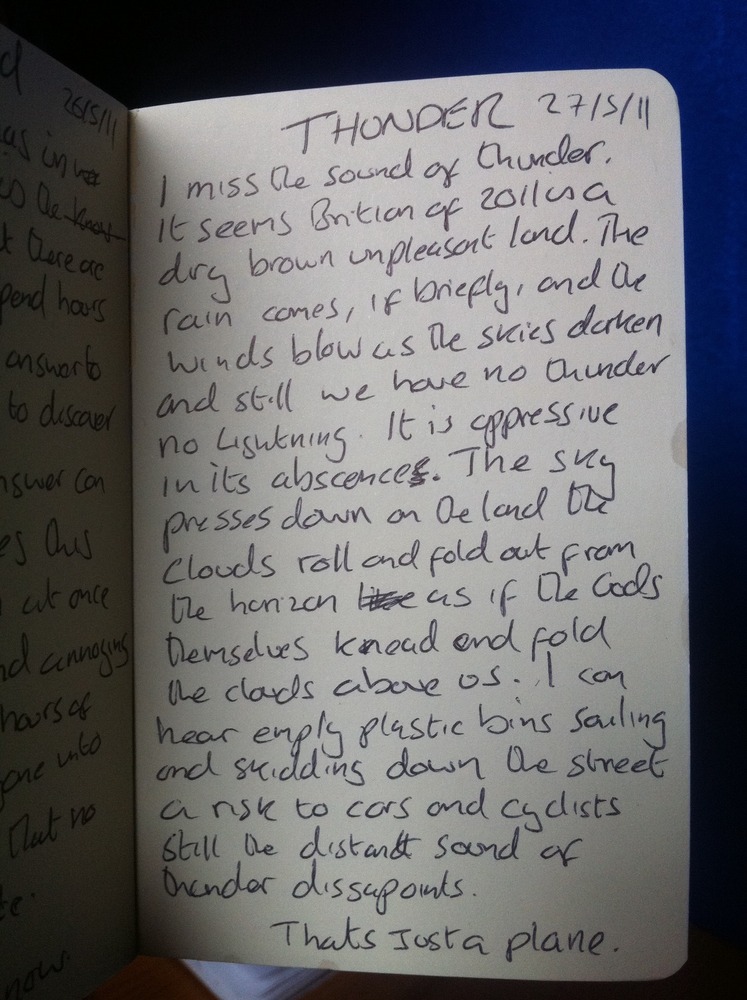 d
26/5/11
as in
the
there are
pend hours
answer to
to discover
nswer can
es this
at once
nd annoying
hours of
gone into
that no
te.
now.
THUNDER 27/5/11
I miss the sound of thunder.
It seems Britian of 2011 is a
dry brown unpleasent land. The
rain comes, if briefly, and the
winds blow as the skies darken
and still we have no thunder
no Lightning. It is oppressive
in its abscence. The sky
presses down on the land the
clouds roll and fold out from
the horizon like as if the Gods
themselves knead and fold
the clouds above us. I can
hear empty plastic bins sailing
and skidding down the street
a risk to cars and cyclists
still the distant sound of
thunder dissapoints.
Thats Just a plane.